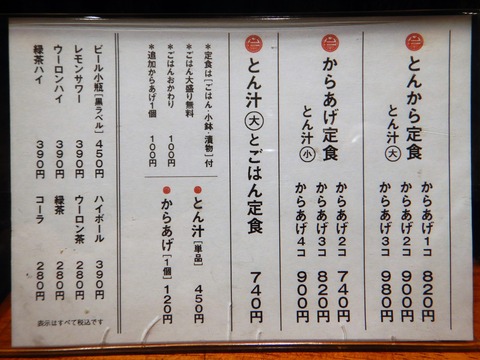 とんから定食
とん汁(大)
からあげ1コ 820円
からあげ2コ 900円
からあげ3コ 980円
からあげ定食
とん汁(小)
からあげ2コ 740円
からあげ3コ 820円
からあげ4コ 900円
とん汁(大)とごはん定食 740円
*定食は[ごはん・小鉢・漬物]付
*ごはん大盛り無料
*ごはんおかわり 100円
*追加からあげ1個 100円
とん汁[単品] 450円
からあげ[1個] 120円
ビール小瓶[黒ラベル] 450円
レモンサワー 390円
ウーロンハイ 390円
緑茶ハイ 390円
ハイボール 390円
ウーロン茶 280円
緑茶 280円
コーラ 280円
表示はすべて税込です